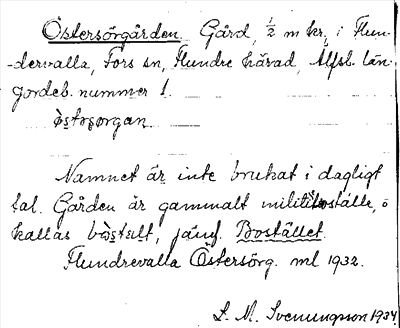 Östersörgården Gård, 1/2 m kr, i Flun-
-dervalla, Fors sn, Flundre härad, Älfsb. län.
jordeb. nummer 1.
Namnet är inte brukat i dagligt
tal. Gården är gammalt militieboställe, o
kallas jämf. Bostället.
Flundrevalla Östersörg. ml 1932.
S. M. Svenungsson 1934